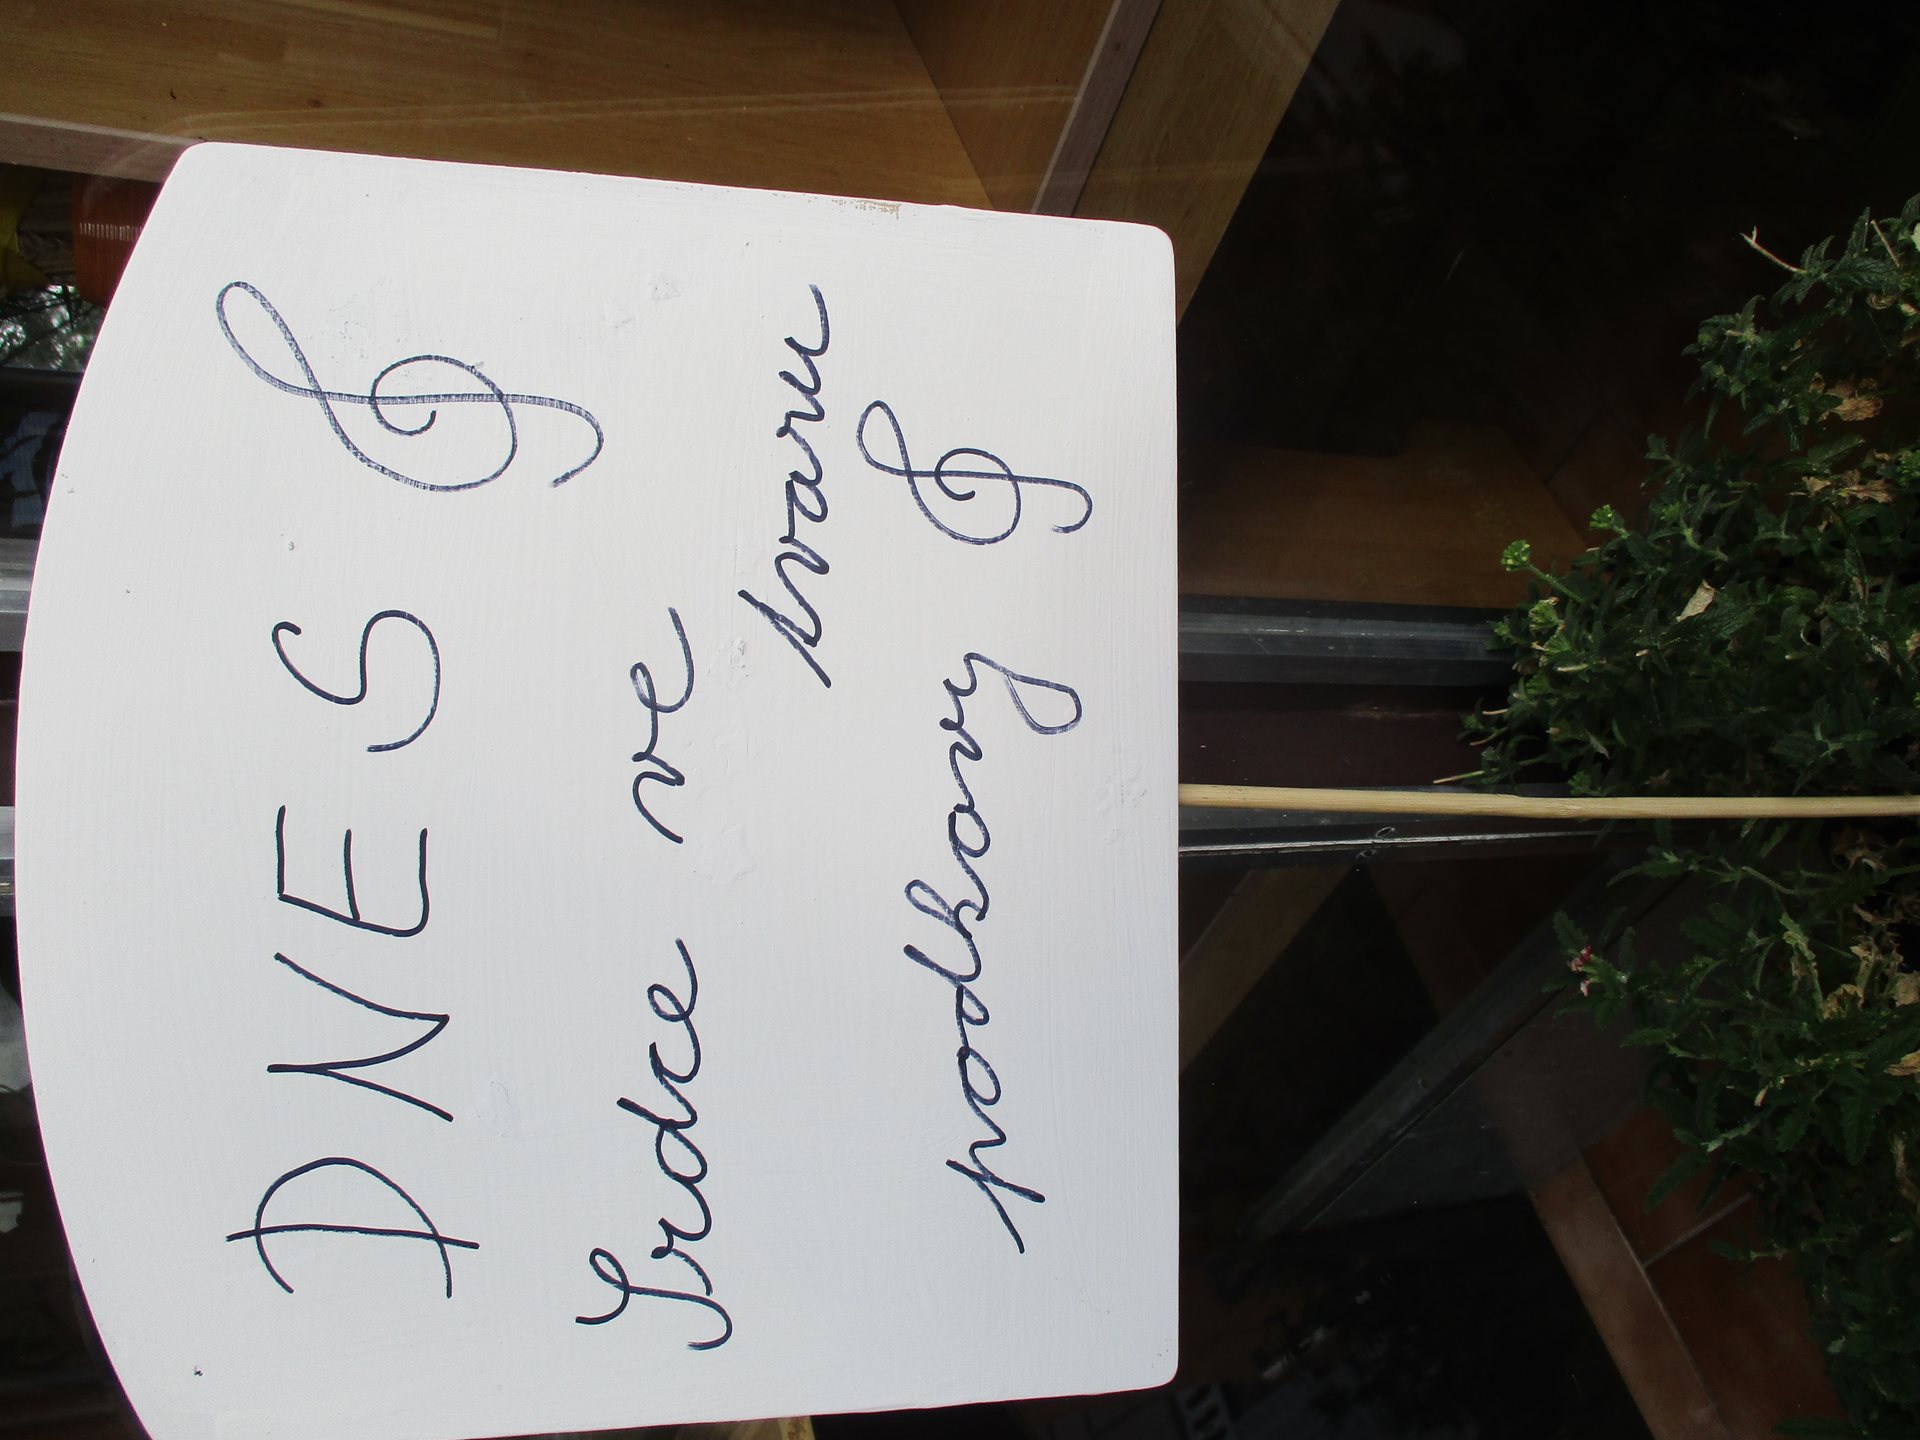 DNES
Srdce ve
tvaru
podkovy